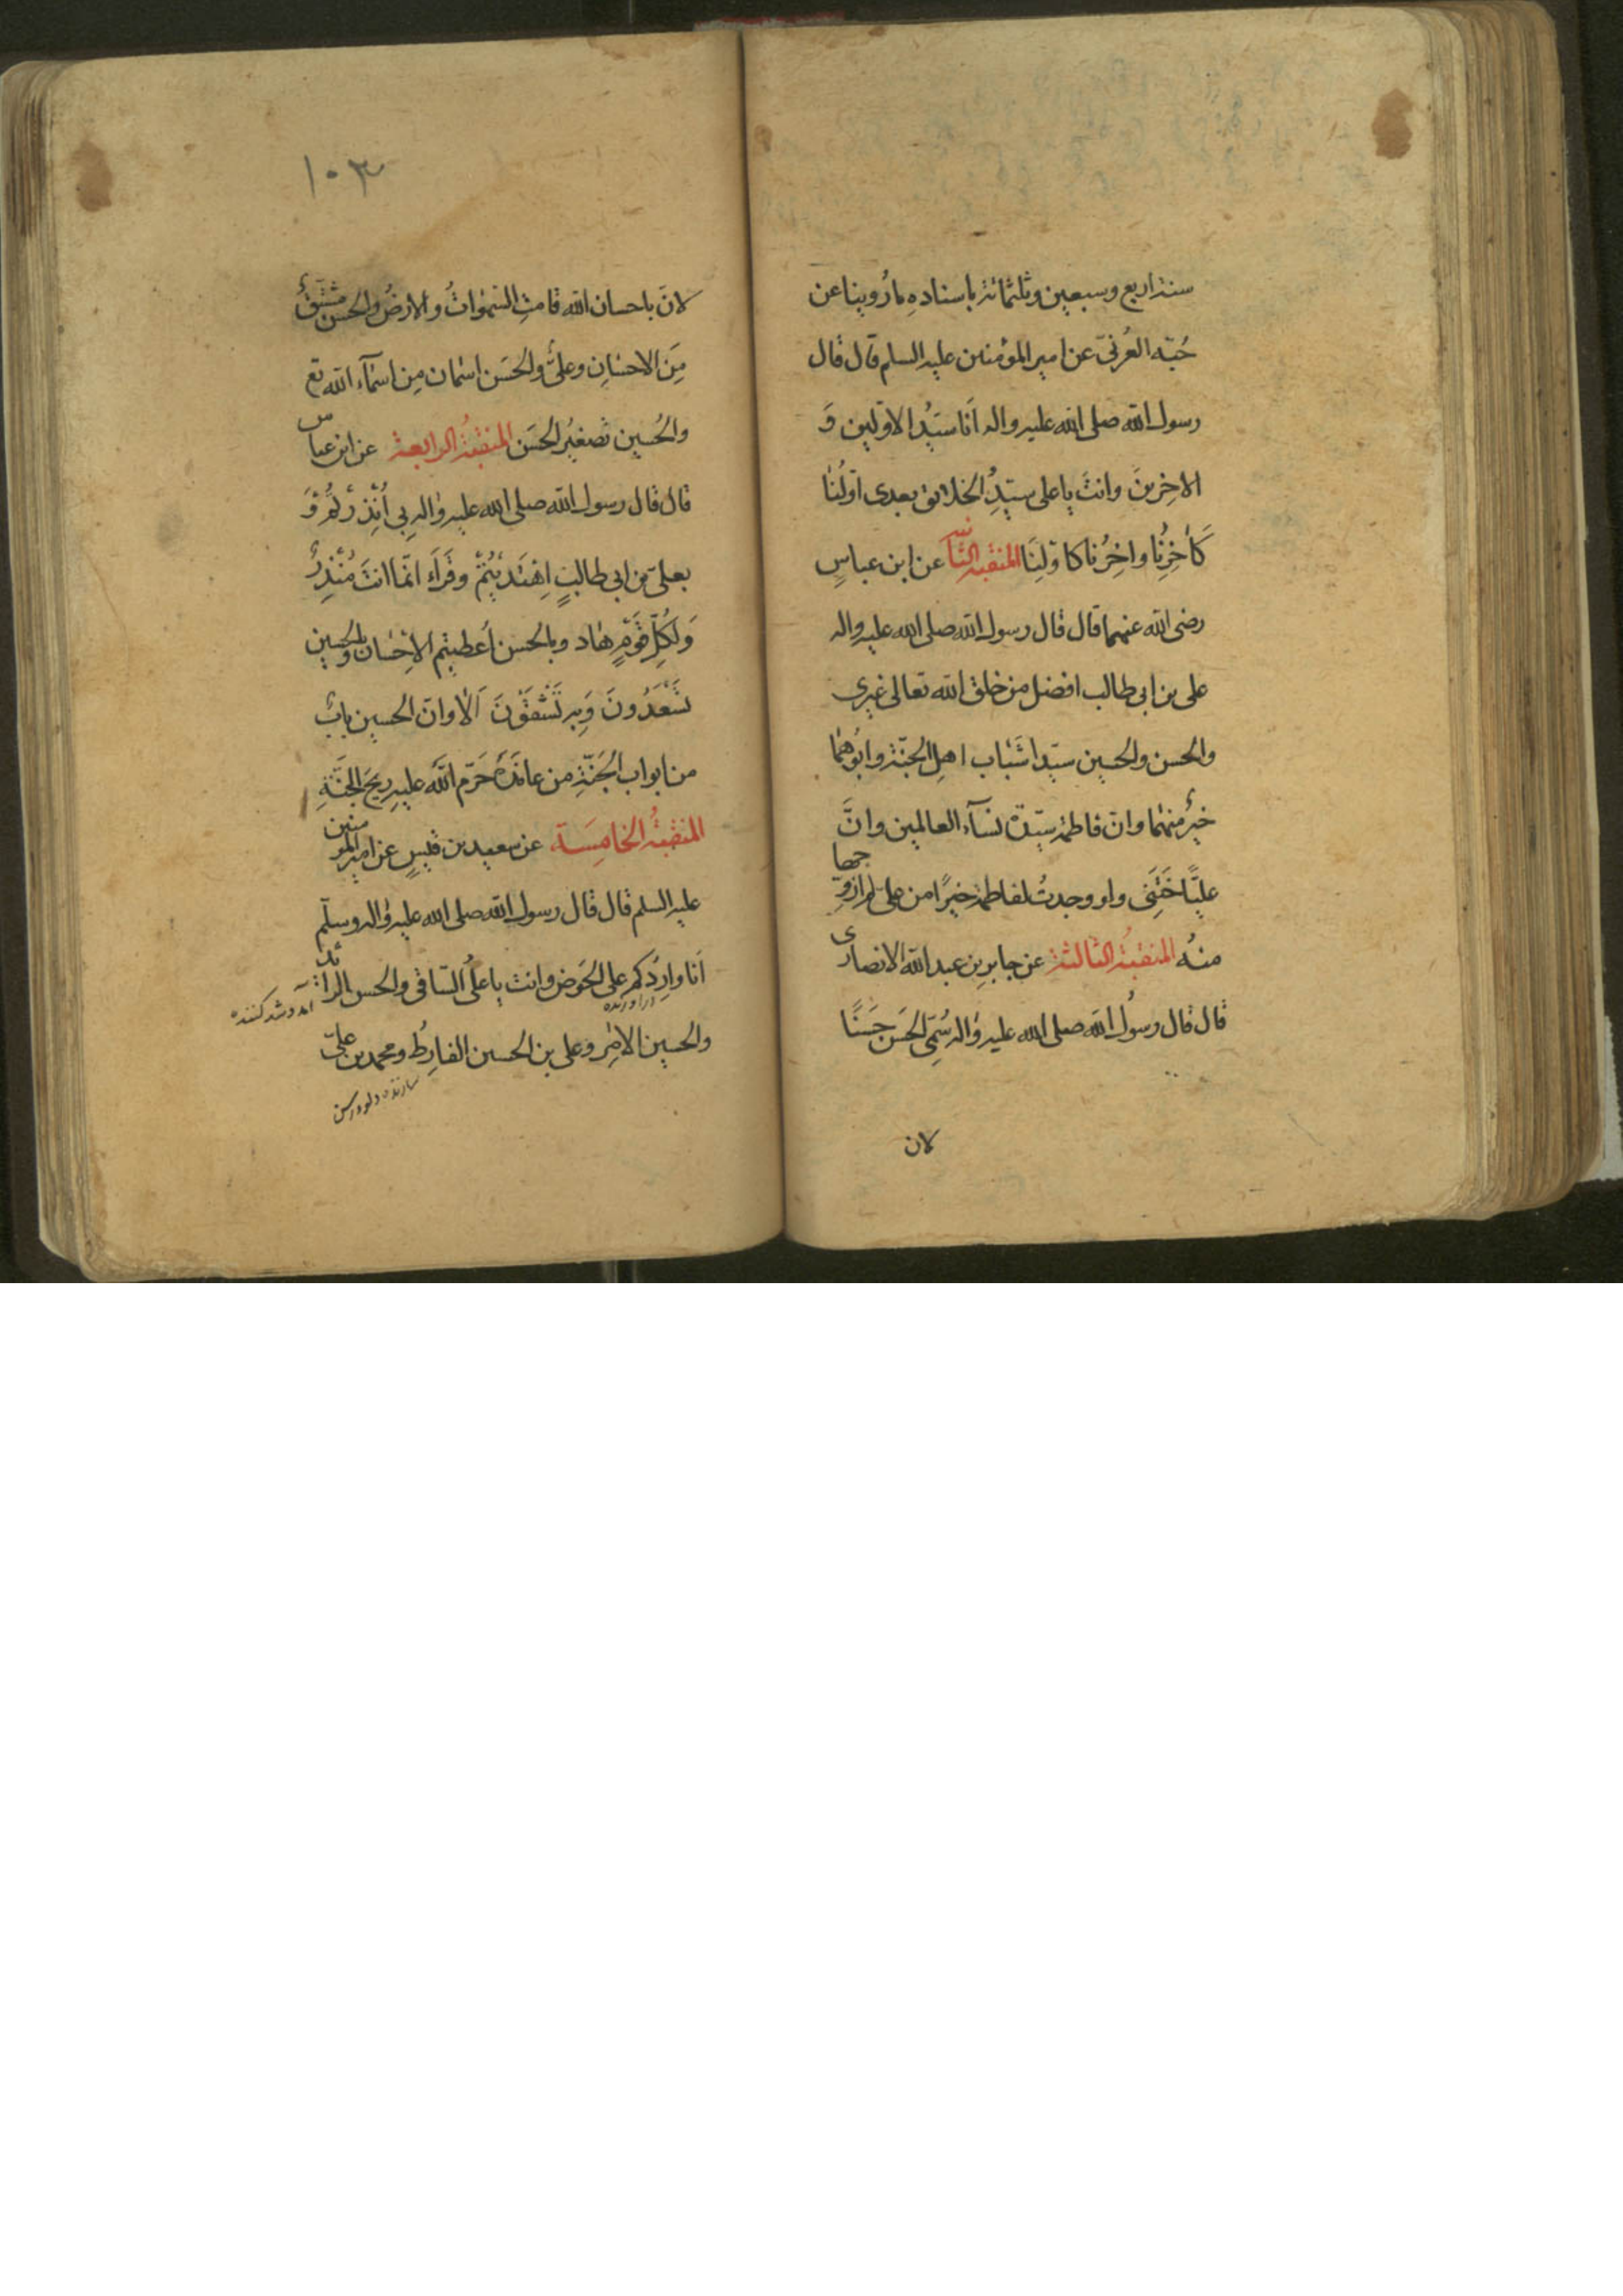 سنة اربع وسبعين وثلثمائة باسناده مارُوينا عن
حُبّه العُرنىّ عن امير المؤمنين عليه السلم قال قال
رسول الله صلى الله عليه واله اَنا سيّدُ الاوّلين وَ
الاخِرينَ وانتَ يا على سيّدِ الخلائق بعدى اوّلُنا
كَأخِرِنا واخِرُنا كاوّلِنَا المنقبة الثانية عن ابن عباسٍ
رضى الله عنهما قال قال رسول الله صلى الله عليه واله
على بن ابى طالب افضل من خلق الله تعالى غيرى
والحسن والحسين سيّدا شَبَاب اهلِ الجنّة وابُوهُما
خيرٌ منهُما وانّ فاطمة سيّدة نسآء العالمين وانَّ
عليّاً خَتَنِى ولو وجدتُ لفاطمة خيرًا من علىّ لم ازوّجها
منهُ المنقبةُ الثالثة عن جابرِبن عبد الله الانصارى
قال قال رسولُ الله صلى الله عليه واله سُمّىَ الحَسَن حَسَنًا
لان
١٠٣
لانَ باحسان الله قامتِ السّمٰواتُ والارضُ والحسن مشتقٌ
مِنَ الاحسَانِ وعلىٌّ والحَسَن اسمان مِن اسمآءِ الله تع
والحُسين تصغيرُ الحَسَن المنقبةُ الرابعة عن ابن عباس
قال قال رسول الله صلى الله عليه واله بى اُنْذِرْتُمْ وَ
بعلىّ بن ابى طالبٍ اِهْتَدَيْتُمْ وقَرَاَءَ انّما انتَ مُنْذِرٌ
وَلِكُلِّ قَوْمٍ هَاد وبالحسن اُعطيتم الاِحْسَان وبالحسين
تَسْعَدُونَ وَبه تَشْقَوْنَ اَلا وانّ الحسين بابٌ
من ابواب الجَنّةِ من عاندَهُ حَرّم اللّهُ عليه ريحَ الجَنَّةِ
المنقبةُ الخامِسَة عن سعيد بن قيسٍ عن امير المؤمنين
عليه السلم قال قال رسول الله صلى الله عليه واله وسلّم
اَنا وارِدُكم على الحَوض وانت يا علىُ السّاقى والحسن الرائدُ
دراورنده
آمد و شد كننده
والحسين الامِرُ وعلى بن الحسين الفارِطُ ومحمد بن علىّ
سازنده دلو و رسن